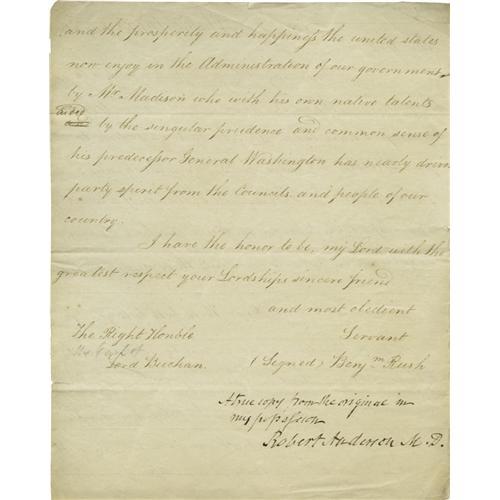 and the prosperity and happiness the united states
now enjoy in the Administration of our government
by Mr Madison who with his own native talents
aided
by the singular prudence and common sense of
his predecessor General Washington has nearly driven
party spirit from the Councils and people of our
country.
I have the honor to be, my Lord with the
greatest respect your Lordships sincere friend
and most obedient
The Right Honble Servant
the Earl of
Lord Buchan. (Signed) Benjm Rush
A true copy from the original in
my possession
Robert Anderson M.D.